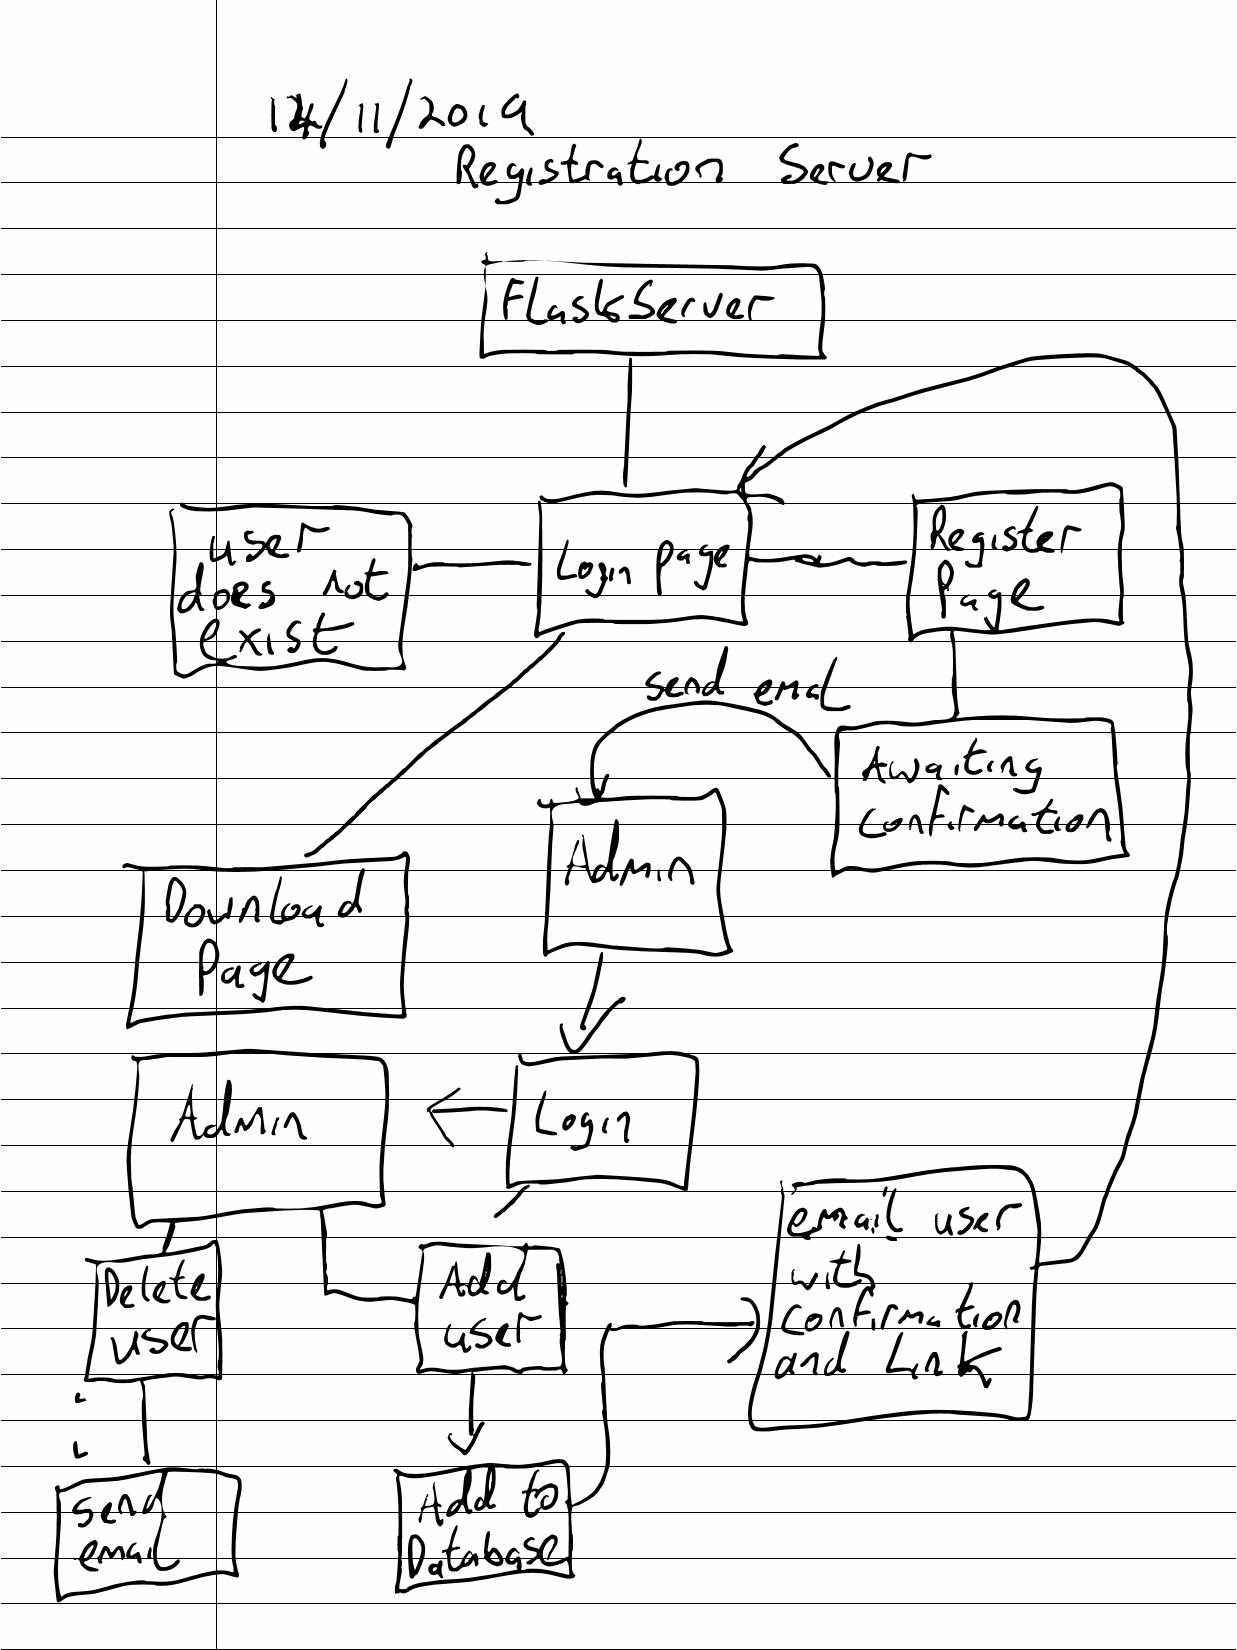 14/11/2019
Registration Server
FlaskServer
user
does not
exist
Login page
Register
Page
send emal
Awaiting
confirmation
Admin
Download
Page
Admin
Login
email user
with
confirmation
and Link
Delete
user
Add
user
send
email
Add to
Database